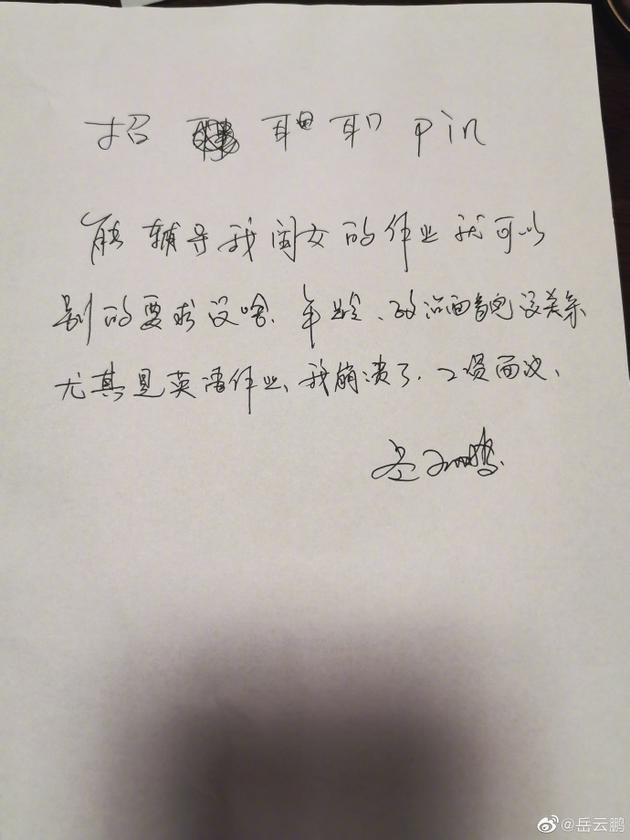 招 pin
能辅导我闺女的作业就可以
别的要求没啥.年龄、政治面貌没关系
尤其是英语作业、我崩溃了.工资面议、
岳云鹏.
@岳云鹏